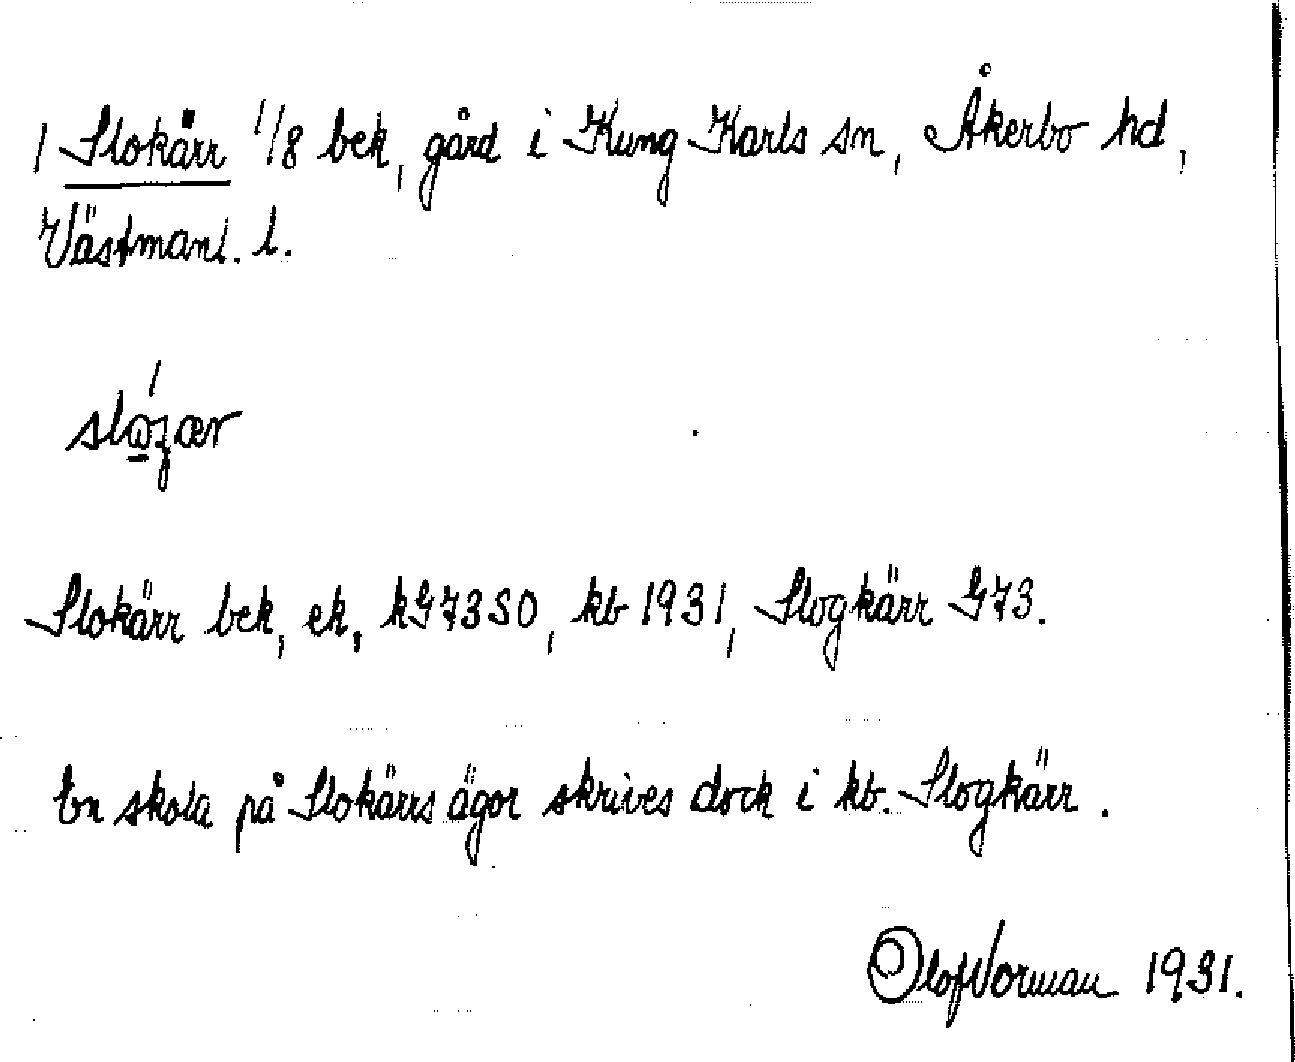 1 Slokärr 1/8 bek, gård i Kung Karls sn, Åkerbo hd,
Västmanl. l.
Slokärr bek, ek, kG73SO, kb 1931, Slogkärr G73.
En skola på Slokärrs ägor skrives dock i kb. Slogkärr.
Olof Norman 1931.